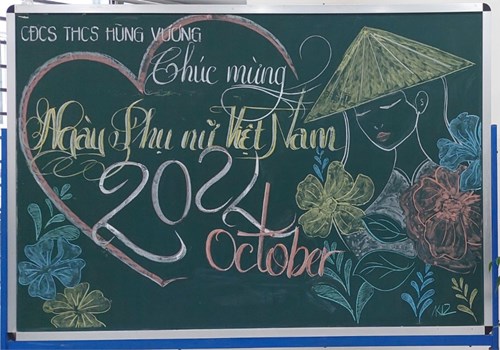 CĐCS THCS HÙNG VƯƠNG
Chúc mừng
Ngày Phụ nữ Việt Nam
2024
October